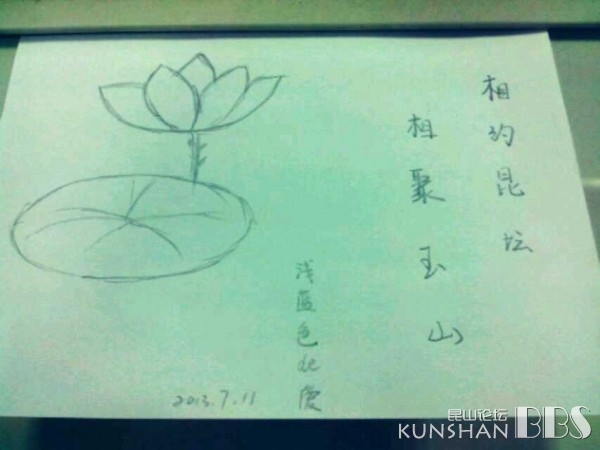 相约昆坛
相聚玉山
浅蓝色de
2013.7.11
昆山论坛
KUNSHAN BBS